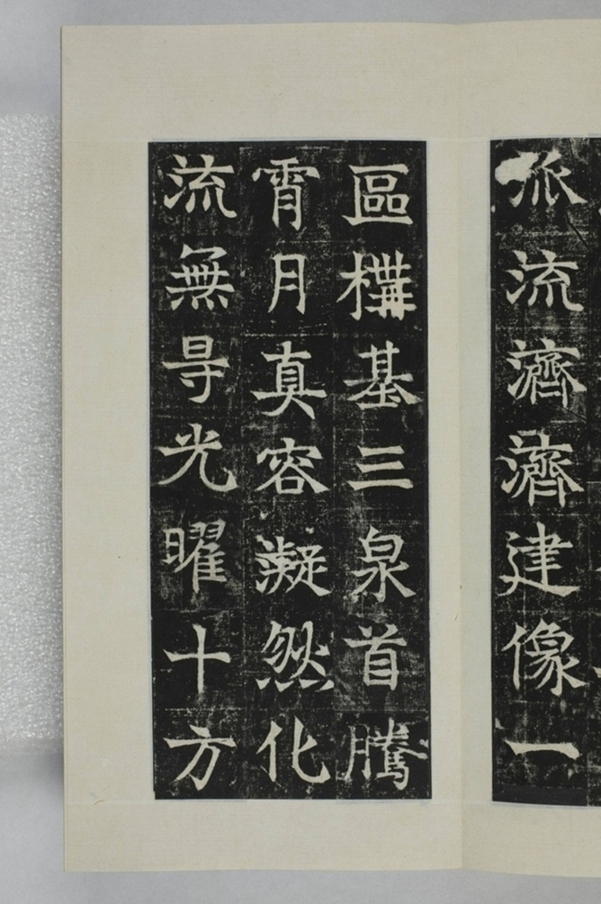 派流濟濟建像一
區構基三泉首騰
霄月真容凝然化
流無㝵光曜十方